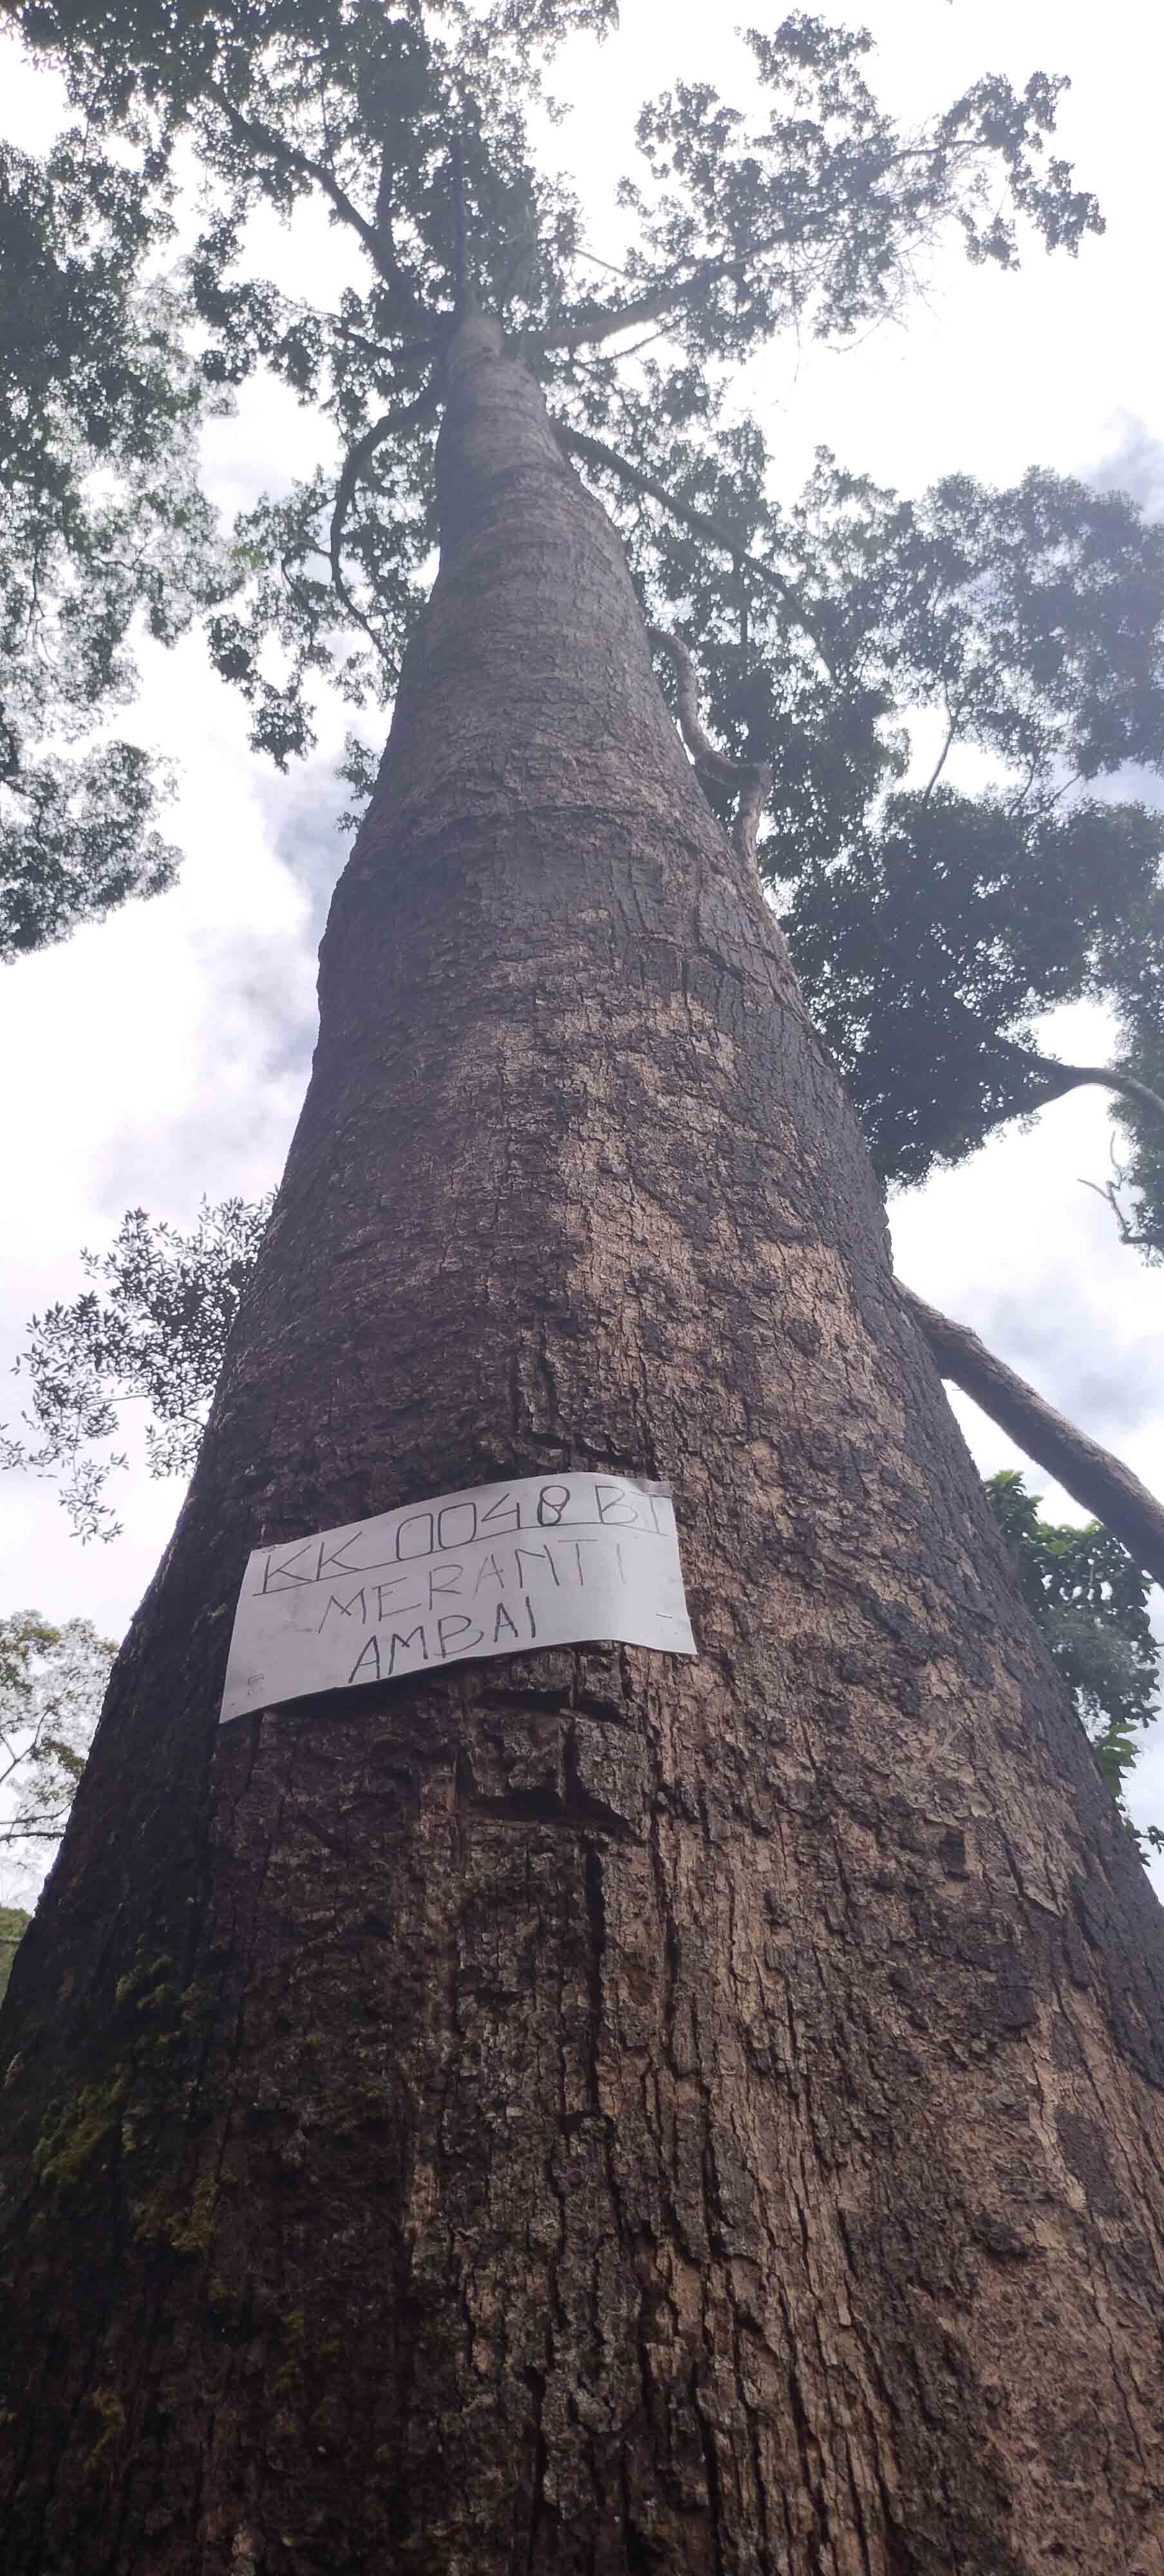 KK 0048 BI
MERANTI
AMBAI